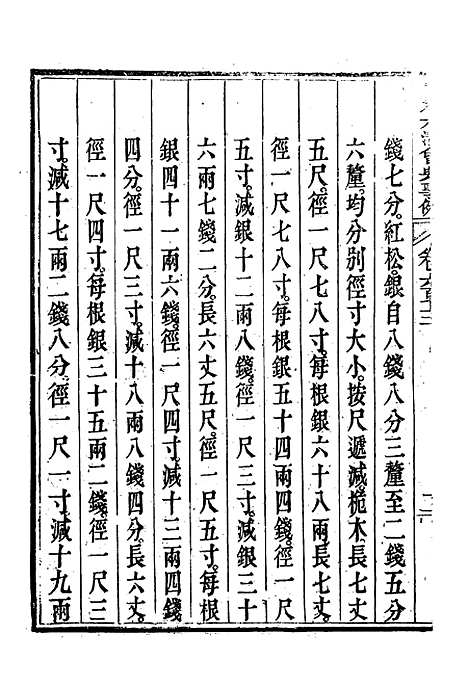 錢七分。紅松。銀自八錢八分三釐至二錢五分
六釐。均分別徑寸大小。按尺遞減。桅木。長七丈
五尺。徑一尺七八寸。每根銀六十八兩。長七丈。
徑一尺七八寸。每根銀六十四兩。徑一尺
五寸。減銀十二兩八錢。徑一尺三寸。減銀三十
六兩七錢二分。長六丈五尺。徑一尺五寸。每根
銀四十一兩六錢。徑一尺四寸。減十三兩四錢
四分。徑一尺三寸。減十八兩八錢四分。長六丈。
徑一尺四寸。每根銀三十五兩二錢。徑一尺三
寸。減十七兩二錢八分。徑一尺一寸。減十九兩